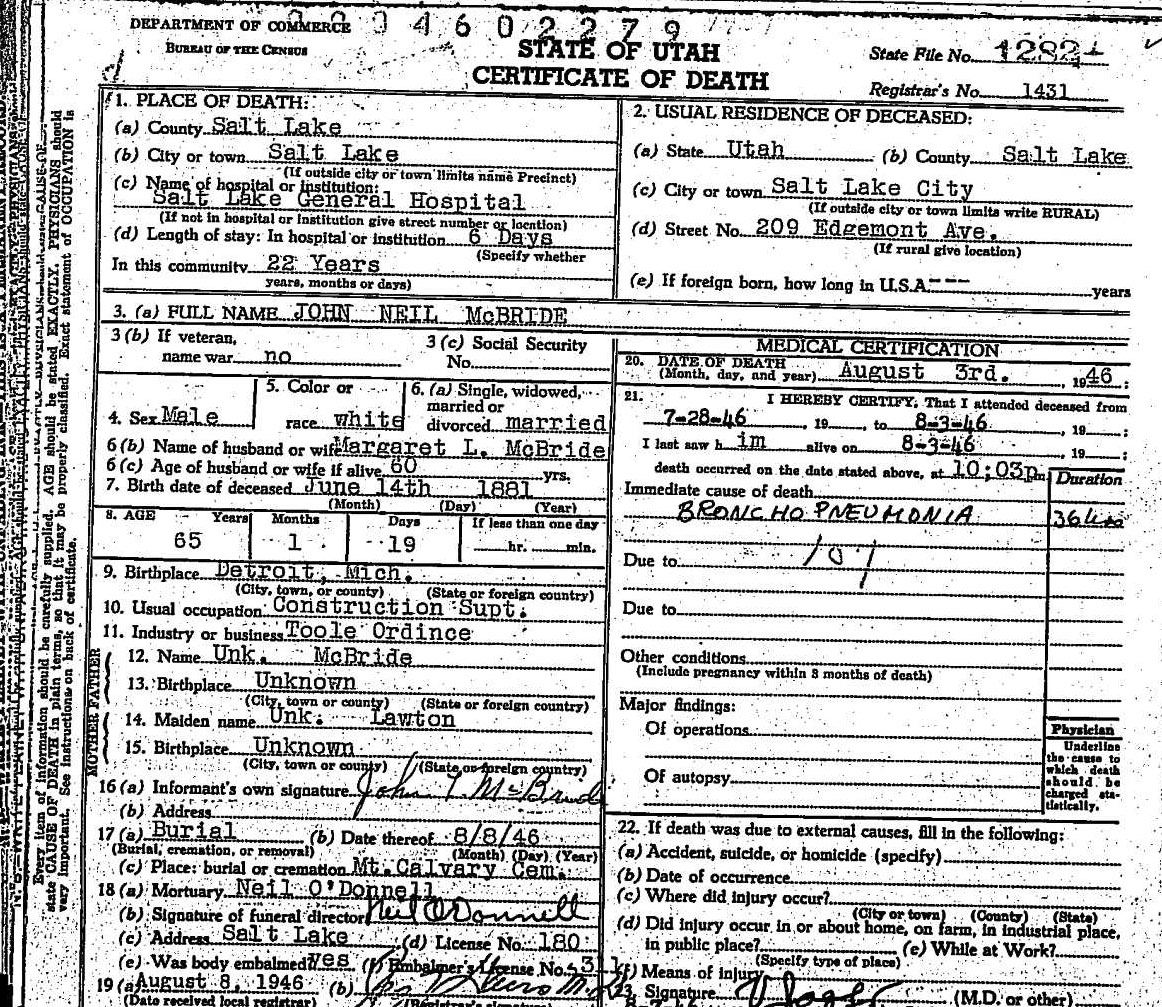 DEPARTMENT OF COMMERCE
BUREAU OF THE CENSUS
4602279
STATE OF UTAH
CERTIFICATE OF DEATH
State File No.
Registrar's No. 1431
1. PLACE OF DEATH:
(a) County Salt Lake
(b) City or town Salt Lake
(If outside city or town limits name Precinct)
(c) Name of hospital or institution:
Salt Lake General Hospital
(If not in hospital or institution give street number or location)
(d) Length of stay: In hospital or institution 6 Days
(Specify whether
In this community 22 Years
years, months or days)
2. USUAL RESIDENCE OF DECEASED:
(a) State Utah (b) County Salt Lake
(c) City or town Salt Lake City
(If outside city or town limits write RURAL)
(d) Street No. 209 Edgemont Ave.
(If rural give location)
(e) If foreign born, how long in U.S.A. --- years
3. (a) FULL NAME JOHN NEIL McBRIDE
3 (b) If veteran,
name war no
3 (c) Social Security
No.
4. Sex Male
5. Color or
race white
6. (a) Single, widowed,
married or
divorced married
6 (b) Name of husband or wife Margaret L. McBride
6 (c) Age of husband or wife if alive 60 yrs.
7. Birth date of deceased June 14th 1881
(Month) (Day) (Year)
8. AGE Years Months Days If less than one day
65 1 19 hr. min.
9. Birthplace Detroit, Mich.
(City, town, or county) (State or foreign country)
10. Usual occupation Construction Supt.
11. Industry or business Toole Ordince
FATHER
12. Name Unk. McBride
13. Birthplace Unknown
(City, town or county) (State or foreign country)
MOTHER
14. Maiden name Unk. Lawton
15. Birthplace Unknown
(City, town or county) (State or foreign country)
16 (a) Informant's own signature John McBride
(b) Address
17 (a) Burial (b) Date thereof 8/8/46
(Burial, cremation, or removal) (Month) (Day) (Year)
(c) Place: burial or cremation Mt. Calvary Cem.
18 (a) Mortuary Neil O'Donnell
(b) Signature of funeral director Neil O'Donnell
(c) Address Salt Lake (d) License No. 180
(e) Was body embalmed? Yes (f) Embalmer's License No.
19 (a) August 8, 1946 (b)
(Date received local registrar) (Registrar's signature)
MEDICAL CERTIFICATION
20. DATE OF DEATH
(Month, day, and year) August 3rd. , 1946 :
21. I HEREBY CERTIFY, That I attended deceased from
7-28-46 , 19 , to 8-3-46 , 19 :
I last saw him alive on 8-3-46 , 19 :
death occurred on the date stated above, at 10:03pm
Duration
Immediate cause of death
BRONCHOPNEUMONIA 36 hrs
107
Due to
Due to
Other conditions
(Include pregnancy within 3 months of death)
Major findings:
Of operations
Of autopsy
Physician
Underline
the cause to
which death
should be
charged sta-
tistically.
22. If death was due to external causes, fill in the following:
(a) Accident, suicide, or homicide (specify)
(b) Date of occurrence
(c) Where did injury occur?
(City or town) (County) (State)
(d) Did injury occur in or about home, on farm, in industrial place,
in public place? (e) While at Work?
(Specify type of place)
(f) Means of injury
23. Signature (M.D. or other)
Every item of information should be carefully supplied. AGE should be stated EXACTLY. PHYSICIANS should
state CAUSE OF DEATH in plain terms, so that it may be properly classified. Exact statement of OCCUPATION is
very important. See instructions on back of certificate.